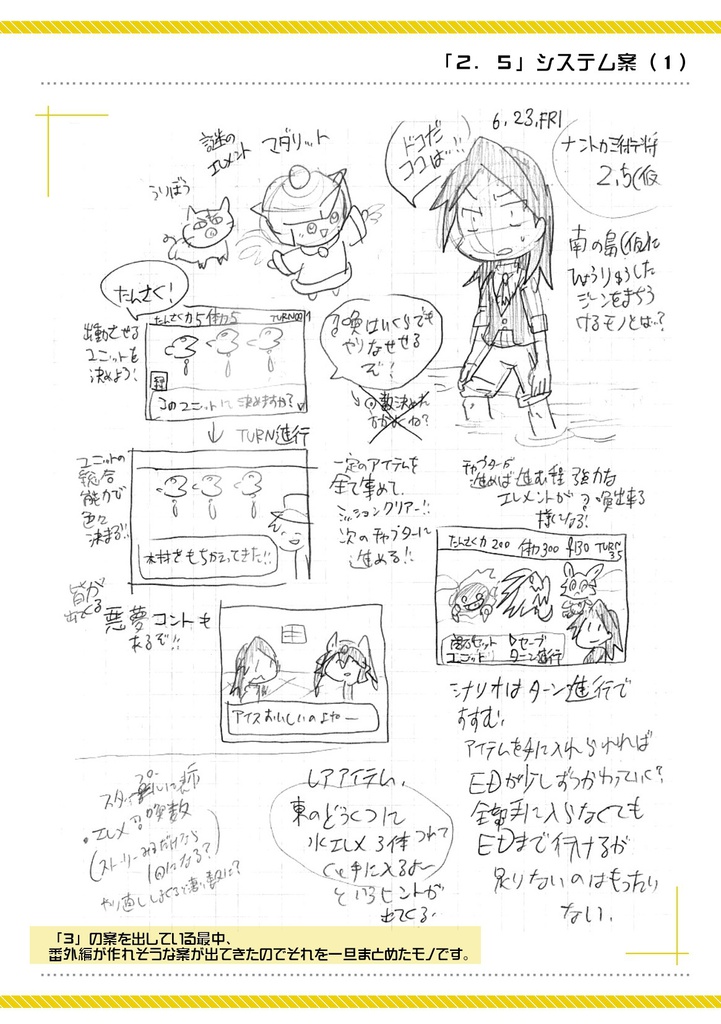 「2．5」システム案（1）
6.23.FRI
2.5(仮
謎の
エレメント マダリット
うりぼう
ドコだ
ココは…!!
南の島(仮)に
ひょうりゅうした
ジーンをまちう
けるモノとは…?
たんさく!
出動させる
ユニットを
決めよう!
たんさく力5 体力5 TURN001
このユニットに決めますか?
↓ TURN進行
召喚はいくらでも
やりなせせる
ぞ!
ユニットの
総合
能力で
色々
決まる!!
木材をもちかえってきた!!
一定のアイテムを
全て集めて、
ミッションクリアー!!
次のチャプターに
進める!!
チャプターが
進めば進む程強力な
エレメントが召喚出来る
様になる!
たんさく力200 体力300 TURN35
ユニット
セーブ
ターン進行
皆が
出てくる 悪夢コントも
あるぞ!!
アイスおいしいのよねー
シナリオはターン進行で
すすむ。
アイテムを手に入れられれば
EDが少しずつかわっていく?
全部手に入らなくても
EDまで行けるが
足りないのはもったい
ない。
・エレメ召喚数
(ストーリーみるだけなら
1回になる?
レアアイテム。
東のどうくつに
氷エレメ3体つれて
くと手に入るよー
というヒントが
出てくる
「3」の案を出している最中、
番外編が作れそうな案が出てきたのでそれを一旦まとめたモノです。